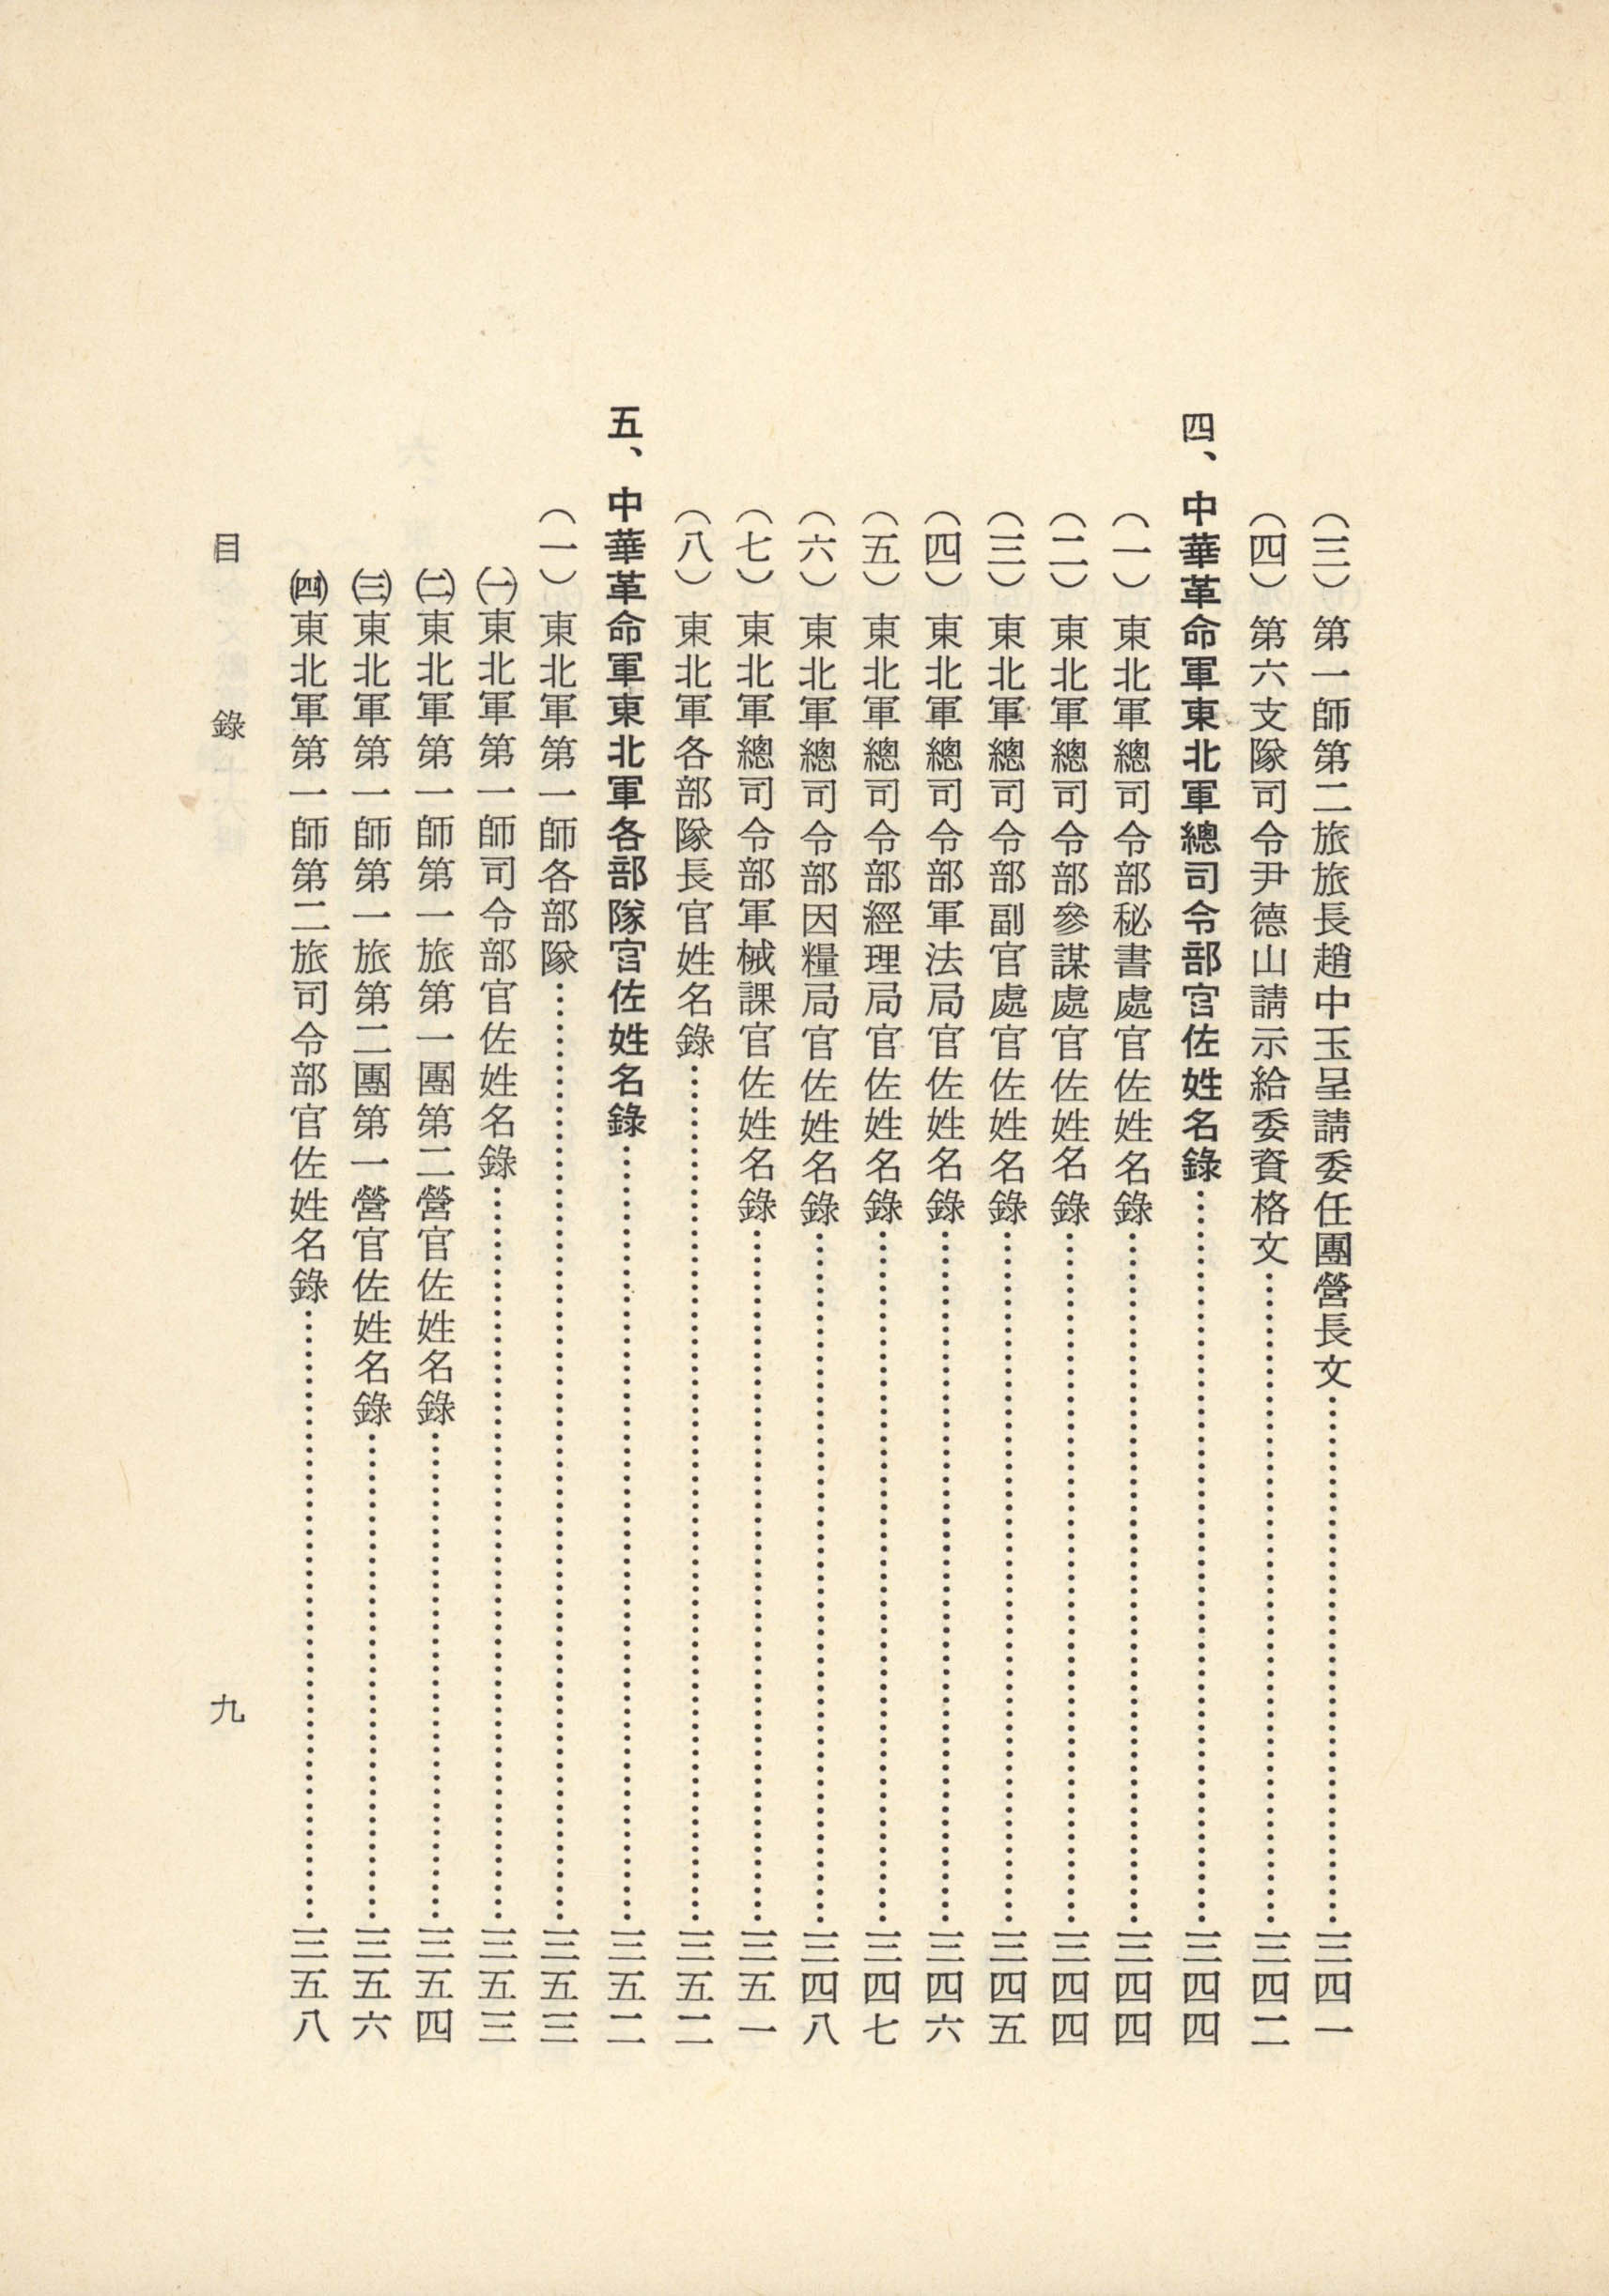 （三）第一師第二旅旅長趙中玉呈請委任團營長文……三四一
（四）第六支隊司令尹德山請示給委資格文……三四二
四、中華革命軍東北軍總司令部官佐姓名錄……三四四
（一）東北軍總司令部秘書處官佐姓名錄……三四四
（二）東北軍總司令部參謀處官佐姓名錄……三四四
（三）東北軍總司令部副官處官佐姓名錄……三四五
（四）東北軍總司令部軍法局官佐姓名錄……三四六
（五）東北軍總司令部經理局官佐姓名錄……三四七
（六）東北軍總司令部因糧局官佐姓名錄……三四八
（七）東北軍總司令部軍械課官佐姓名錄……三五一
（八）東北軍各部隊長官姓名錄……三五二
五、中華革命軍東北軍各部隊官佐姓名錄……三五二
（一）東北軍第一師各部隊……三五三
㈠東北軍第一師司令部官佐姓名錄……三五三
㈡東北軍第一師第一旅第一團第二營官佐姓名錄……三五四
㈢東北軍第一師第一旅第二團第一營官佐姓名錄……三五六
㈣東北軍第一師第二旅司令部官佐姓名錄……三五八
目錄 九